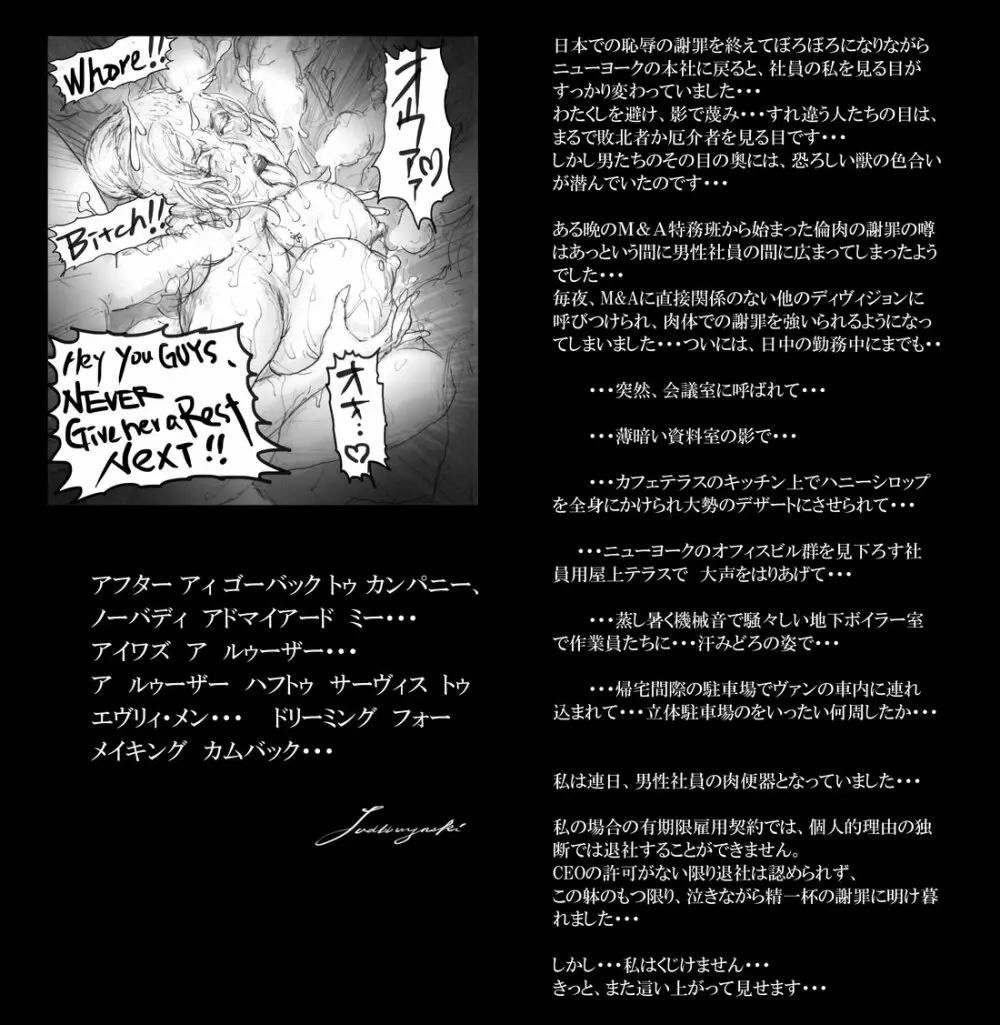 Whore!!
Bitch!!
オウアァァ♡
オオ…♡
Hey You GUYS、
NEVER
Give her a Rest
NEXT!!
アフター アィ ゴーバック トゥ カンパニー、
ノーバディ アドマイアード ミー・・・
アイワズ ア ルゥーザー・・・
ア ルゥーザー ハフトゥ サーヴィス トゥ
エヴリィ・メン・・・ ドリーミング フォー
メイキング カムバック・・・
日本での恥辱の謝罪を終えてぼろぼろになりながら
ニューヨークの本社に戻ると、社員の私を見る目が
すっかり変わっていました・・・
わたくしを避け、影で蔑み・・・すれ違う人たちの目は、
まるで敗北者か厄介者を見る目です・・・
しかし男たちのその目の奥には、恐ろしい獣の色合い
が潜んでいたのです・・・
ある晩のM&A特務班から始まった倫肉の謝罪の噂
はあっという間に男性社員の間に広まってしまったよう
でした・・・
毎夜、M&Aに直接関係のない他のディヴィジョンに
呼びつけられ、肉体での謝罪を強いられるようになっ
てしまいました・・・ついには、日中の勤務中にまでも・・
・・・突然、会議室に呼ばれて・・・
・・・薄暗い資料室の影で・・・
・・・カフェテラスのキッチン上でハニーシロップ
を全身にかけられ大勢のデザートにさせられて・・・
・・・ニューヨークのオフィスビル群を見下ろす社
員用屋上テラスで 大声をはりあげて・・・
・・・蒸し暑く機械音で騒々しい地下ボイラー室
で作業員たちに・・・汗みどろの姿で・・・
・・・帰宅間際の駐車場でヴァンの車内に連れ
込まれて・・・立体駐車場のをいったい何周したか・・・
私は連日、男性社員の肉便器となっていました・・・
私の場合の有期限雇用契約では、個人的理由の独
断では退社することができません。
CEOの許可がない限り退社は認められず、
この躰のもつ限り、泣きながら精一杯の謝罪に明け暮
れました・・・
しかし・・・私はくじけません・・・
きっと、また這い上がって見せます・・・